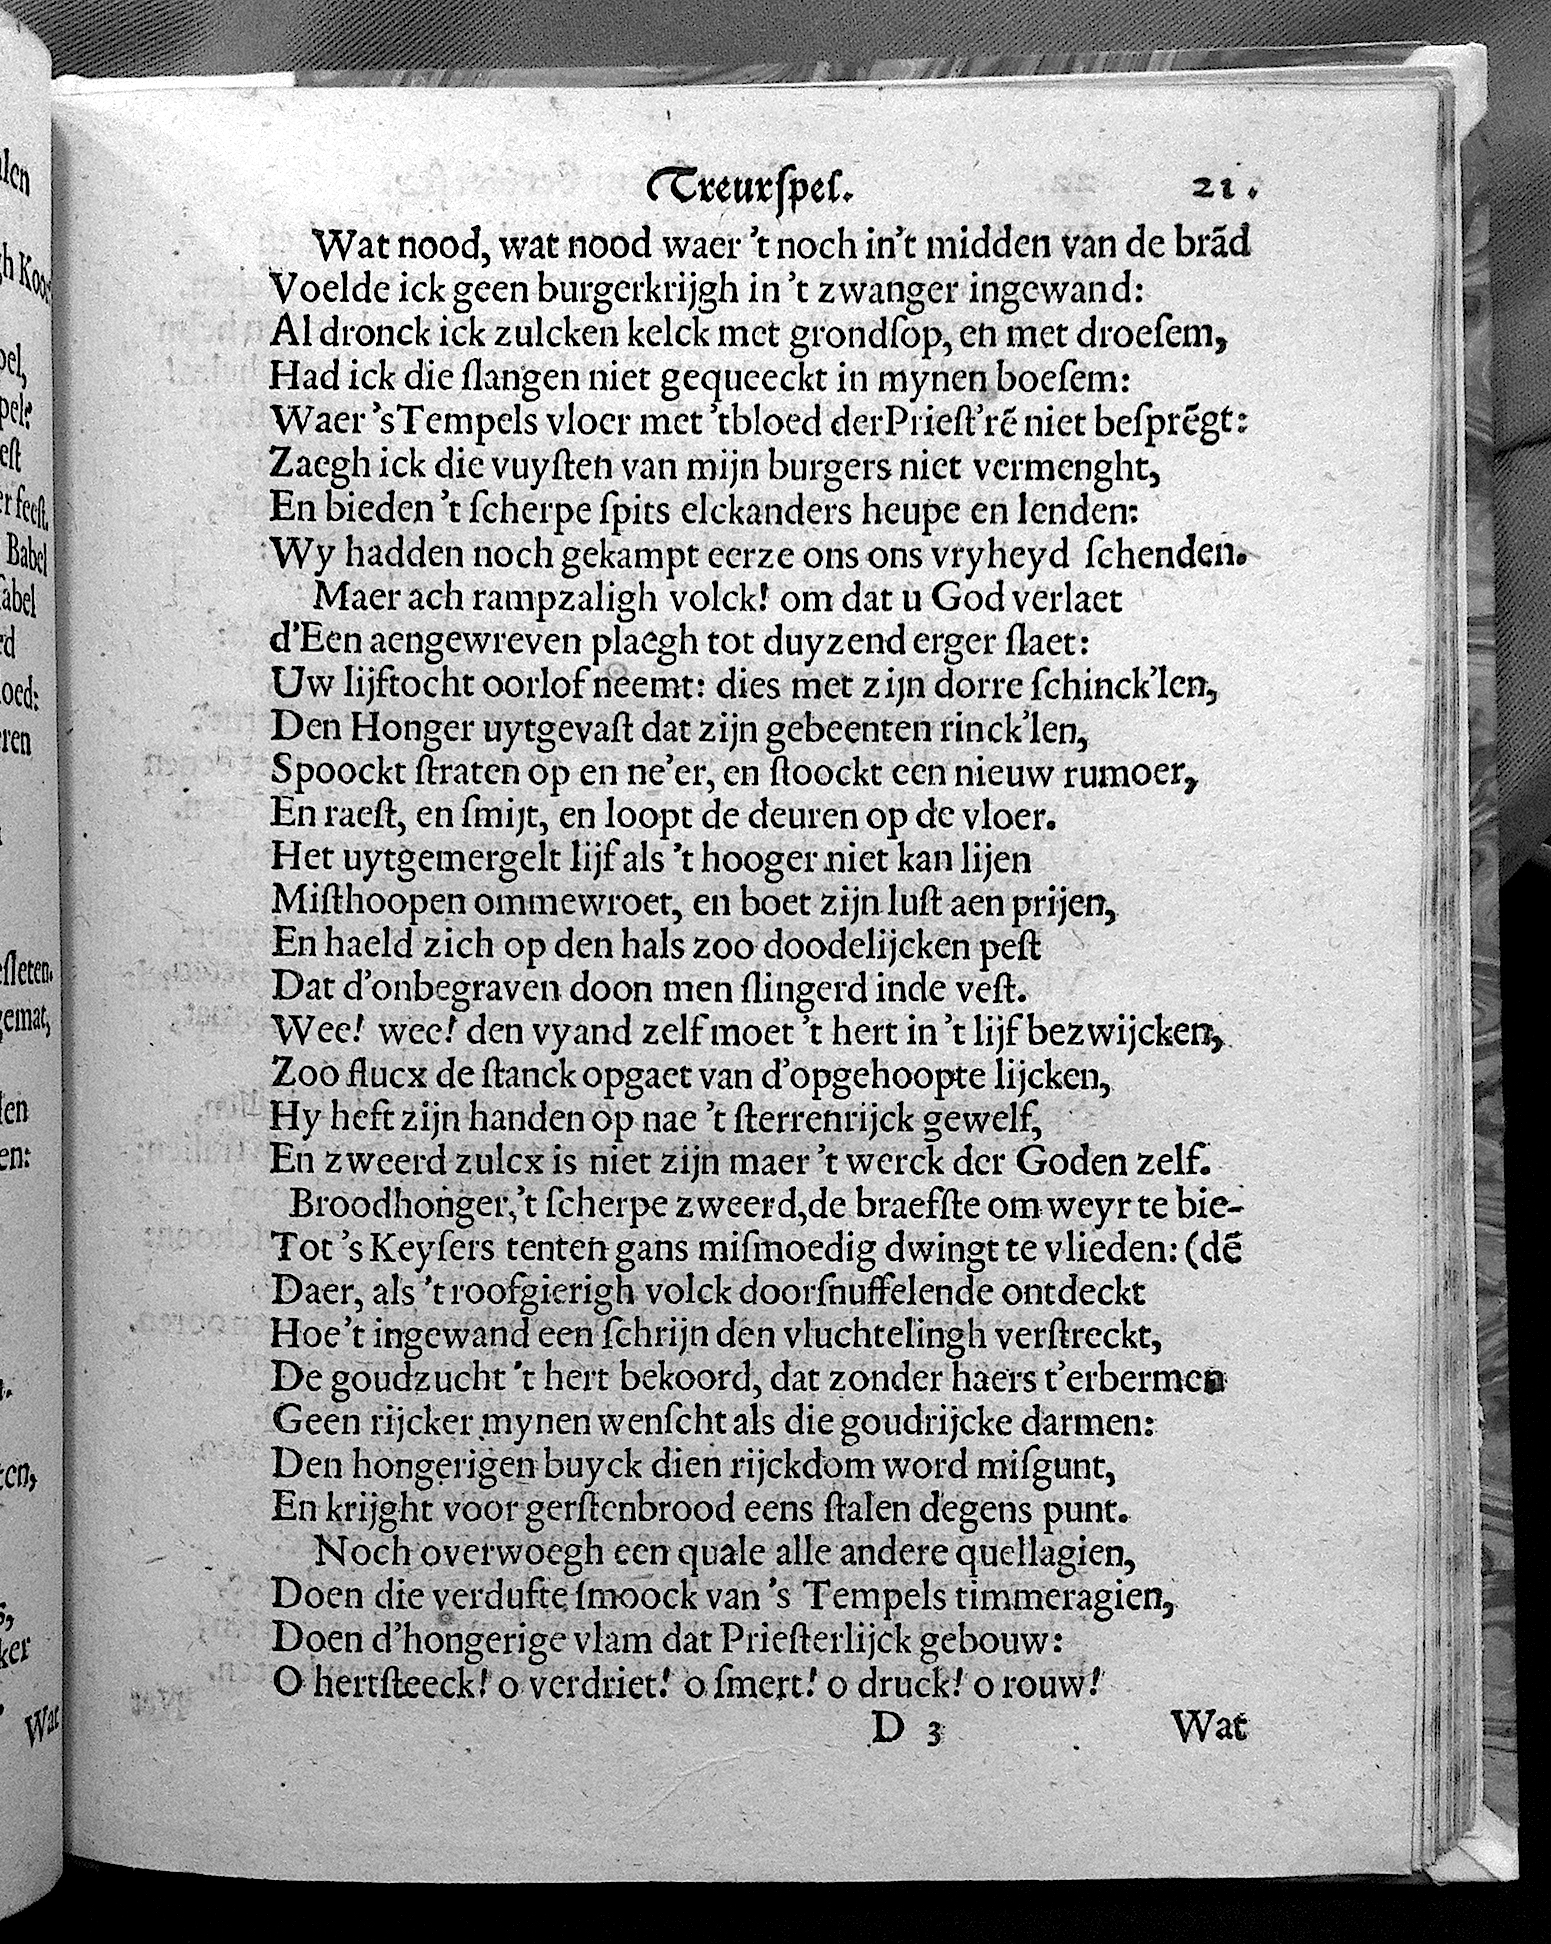 Treurſpel. 21.
Wat nood, wat nood waer 't noch in't midden van de brãd
Voelde ick geen burgerkrijgh in 't zwanger ingewand:
Al dronck ick zulcken kelck met grondſop, en met droeſem,
Had ick die ſlangen niet gequeeckt in mynen boeſem:
Waer 'sTempels vloer met 'tbloed derPrieſt'rẽ niet beſprẽgt:
Zaegh ick die vuyſten van mijn burgers niet vermenght,
En bieden 't ſcherpe ſpits elckanders heupe en lenden:
Wy hadden noch gekampt eerze ons ons vryheyd ſchenden.
Maer ach rampzaligh volck! om dat u God verlaet
d'Een aengewreven plaegh tot duyzend erger ſlaet:
Uw lijftocht oorlof neemt: dies met zijn dorre ſchinck'len,
Den Honger uytgevaſt dat zijn gebeenten rinck'len,
Spoockt ſtraten op en ne'er, en ſtoockt een nieuw rumoer,
En raeſt, en ſmijt, en loopt de deuren op de vloer.
Het uytgemergelt lijf als 't hooger niet kan lijen
Miſthoopen ommewroet, en boet zijn luſt aen prijen,
En haeld zich op den hals zoo doodelijcken peſt
Dat d'onbegraven doon men ſlingerd inde veſt.
Wee! wee! den vyand zelf moet 't hert in 't lijf bezwijcken,
Zoo flucx de ſtanck opgaet van d'opgehoopte lijcken,
Hy heft zijn handen op nae 't ſterrenrijck gewelf,
En zweerd zulcx is niet zijn maer 't werck der Goden zelf.
Broodhonger,'t ſcherpe zweerd,de braefſte om weyr te bie-
Tot 's Keyſers tenten gans miſmoedig dwingt te vlieden: (dẽ
Daer, als 't roofgierigh volck doorſnuffelende ontdeckt
Hoe't ingewand een ſchrijn den vluchtelingh verſtreckt,
De goudzucht 't hert bekoord, dat zonder haers t'erbermen
Geen rijcker mynen wenſcht als die goudrijcke darmen:
Den hongerigen buyck dien rijckdom word miſgunt,
En krijght voor gerſtenbrood eens ſtalen degens punt.
Noch overwoegh een quale alle andere quellagien,
Doen die verdufte ſmoock van 's Tempels timmeragien,
Doen d'hongerige vlam dat Prieſterlijck gebouw:
O hertſteeck! o verdriet! o ſmert! o druck! o rouw!
D 3 Wat